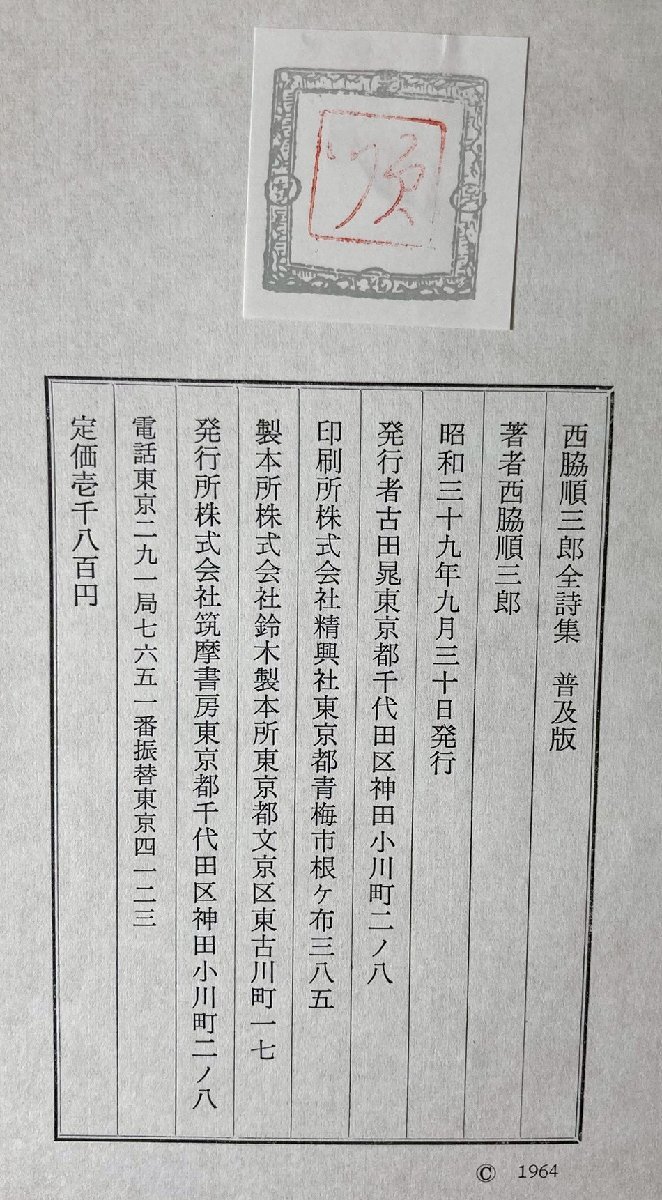 順
西脇順三郎全詩集　普及版
著者西脇順三郎
昭和三十九年九月三十日発行
発行者古田晁東京都千代田区神田小川町二ノ八
印刷所株式会社精興社東京都青梅市根ケ布三八五
製本所株式会社鈴木製本所東京都文京区東古川町一七
発行所株式会社筑摩書房東京都千代田区神田小川町二ノ八
電話東京二九一局七六五一番振替東京四一二三
定価壱千八百円
© 1964